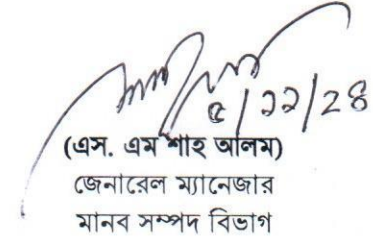 ৫/১১/২৪
(এস. এম শাহ আলম)
জেনারেল ম্যানেজার
মানব সম্পদ বিভাগ